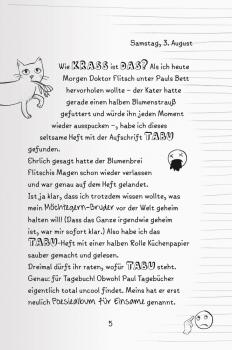 Samstag, 3. August
Wie KRASS ist DAS? Als ich heute
Morgen Doktor Flitsch unter Pauls Bett
hervorholen wollte – der Kater hatte
gerade einen halben Blumenstrauß
gefuttert und würde ihn jeden Moment
wieder ausspucken –, habe ich dieses
seltsame Heft mit der Aufschrift TABU
gefunden.
Ehrlich gesagt hatte der Blumenbrei
Flitschis Magen schon wieder verlassen
und war genau auf dem Heft gelandet.
Ist ja klar, dass ich trotzdem wissen wollte, was
mein Möchtegern-Bruder vor der Welt geheim
halten will! (Dass das Ganze irgendwie geheim
ist, war mir sofort klar.) Also habe ich das
TABU-Heft mit einer halben Rolle Küchenpapier
sauber gemacht und gelesen.
Dreimal dürft ihr raten, wofür TABU steht.
Genau: für Tagebuch! Obwohl Paul Tagebücher
eigentlich total uncool findet. Meins hat er erst
neulich Poesiealbum für Einsame genannt.
5